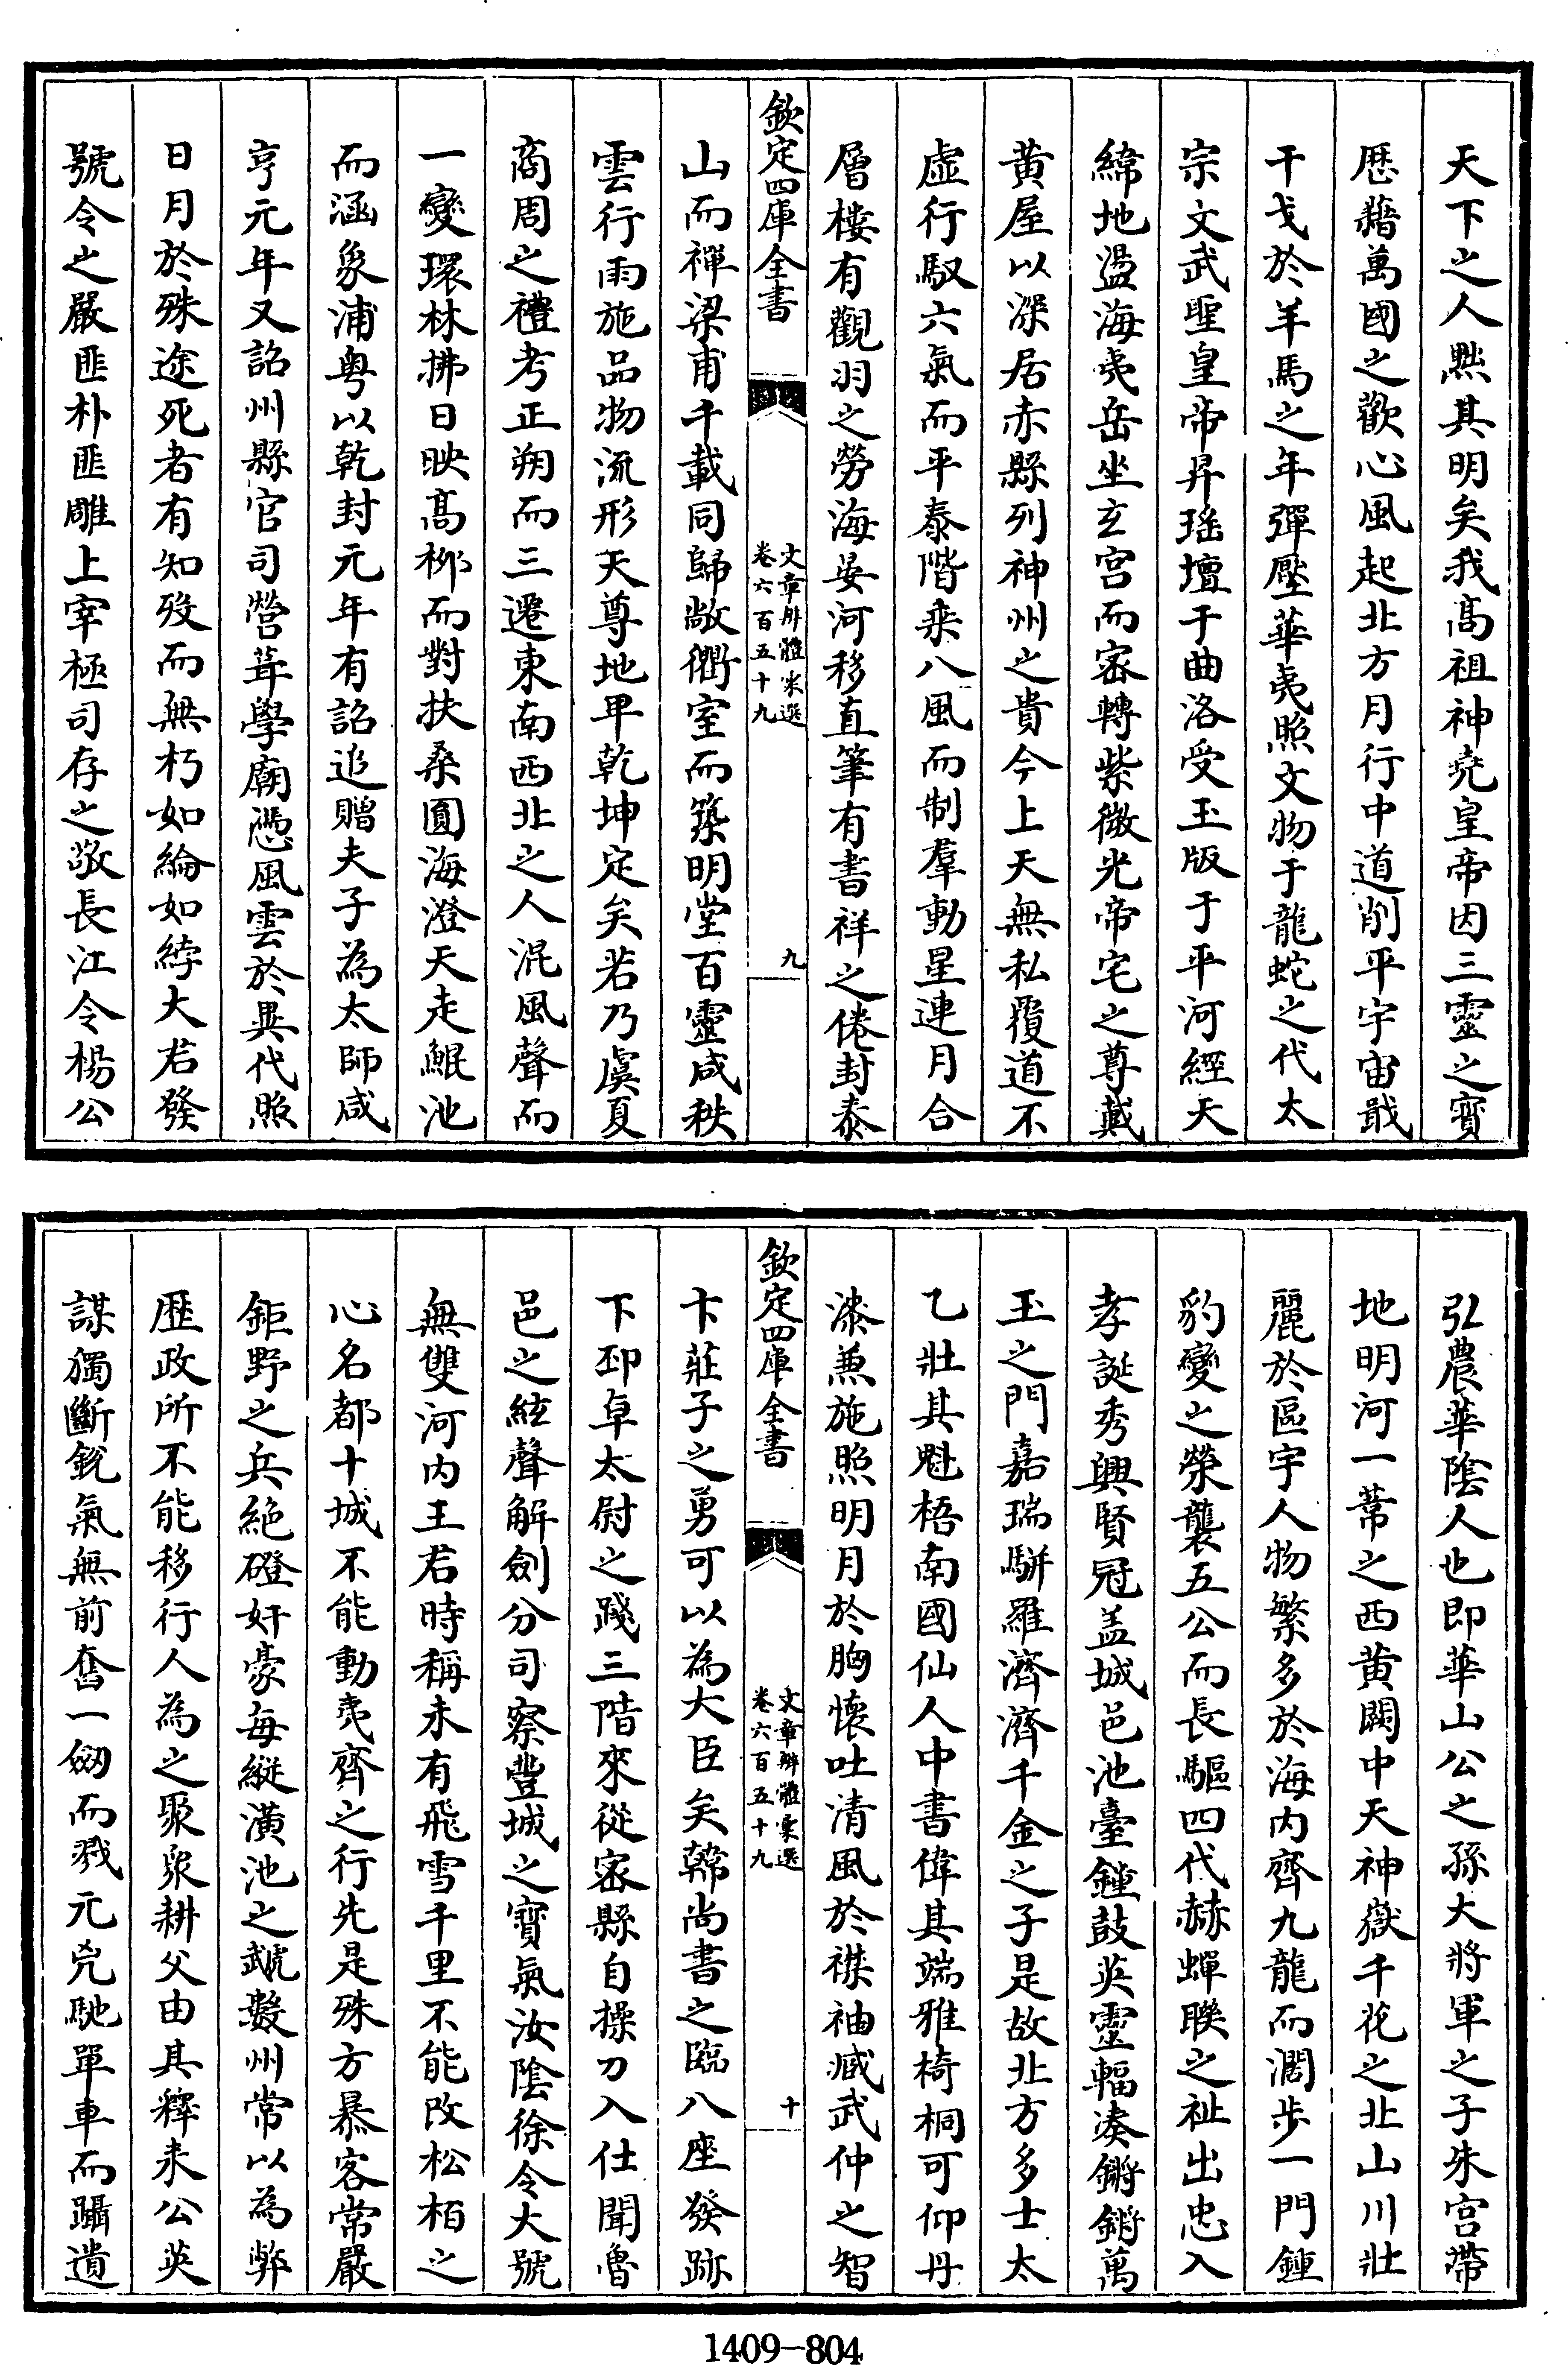 天下之人黙其明矣我髙祖神堯皇帝因三靈之寳
厯藉萬國之歡心風起北方月行中道削平宇宙戢
干戈於羊馬之年彈壓華夷照文物于龍蛇之代太
宗文武聖皇帝昇瑤壇于曲洛受玉版于平河經天
緯地盪海夷岳坐玄宫而宻轉紫微光帝宅之尊戴
黄屋以深居赤縣列神州之貴今上天無私覆道不
虚行馭六氣而平泰階乘八風而制羣動星連月合
層樓有觀羽之勞海晏河移直筆有書祥之倦封泰
欽定四庫全書
文章辨體彚選
卷六百五十九
九
山而禪梁甫千載同歸敞衢室而築明堂百靈咸秩
雲行雨施品物流形天尊地卑乾坤定矣若乃虞夏
商周之禮考正朔而三遷東南西北之人混風聲而
一變環林拂日映髙柳而對扶桑圓海澄天走鯤池
而涵象浦粤以乾封元年有詔追贈夫子為太師咸
亨元年又詔州縣官司營葺學廟憑風雲於異代照
日月於殊途死者有知歿而無朽如綸如綍大君發
號令之嚴匪朴匪雕上宰極司存之敬長江令楊公
弘農華陰人也即華山公之孫大將軍之子朱宫帶
地明河一葦之西黄闕中天神嶽千花之北山川壯
麗於區宇人物繁多於海内齊九龍而濶步一門鍾
豹變之榮襲五公而長驅四代赫蟬聨之祉出忠入
孝誕秀興賢冠盖城邑池臺鐘鼓英靈輻凑鏘鏘萬
玉之門嘉瑞駢羅濟濟千金之子是故北方多士太
乙壯其魁梧南國仙人中書偉其端雅椅桐可仰丹
漆兼施照明月於胸懷吐清風於襟袖臧武仲之智
欽定四庫全書
文章辨體彚選
卷六百五十九
十
卞莊子之勇可以為大臣矣韓尚書之臨八座發跡
下邳卓太尉之踐三階來從宻縣自操刀入仕聞魯
邑之絃聲解劍分司察豐城之寳氣汝陰徐令大號
無雙河内王君時稱未有飛雪千里不能改松栢之
心名都十城不能動夷齊之行先是殊方暴客常嚴
鉅野之兵絶磴奸豪每縱潢池之虣數州常以為弊
歴政所不能移行人為之聚衆耕父由其釋耒公英
謀獨斷鋭氣無前奮一劒而戮元兇馳單車而躡遺
1409-804